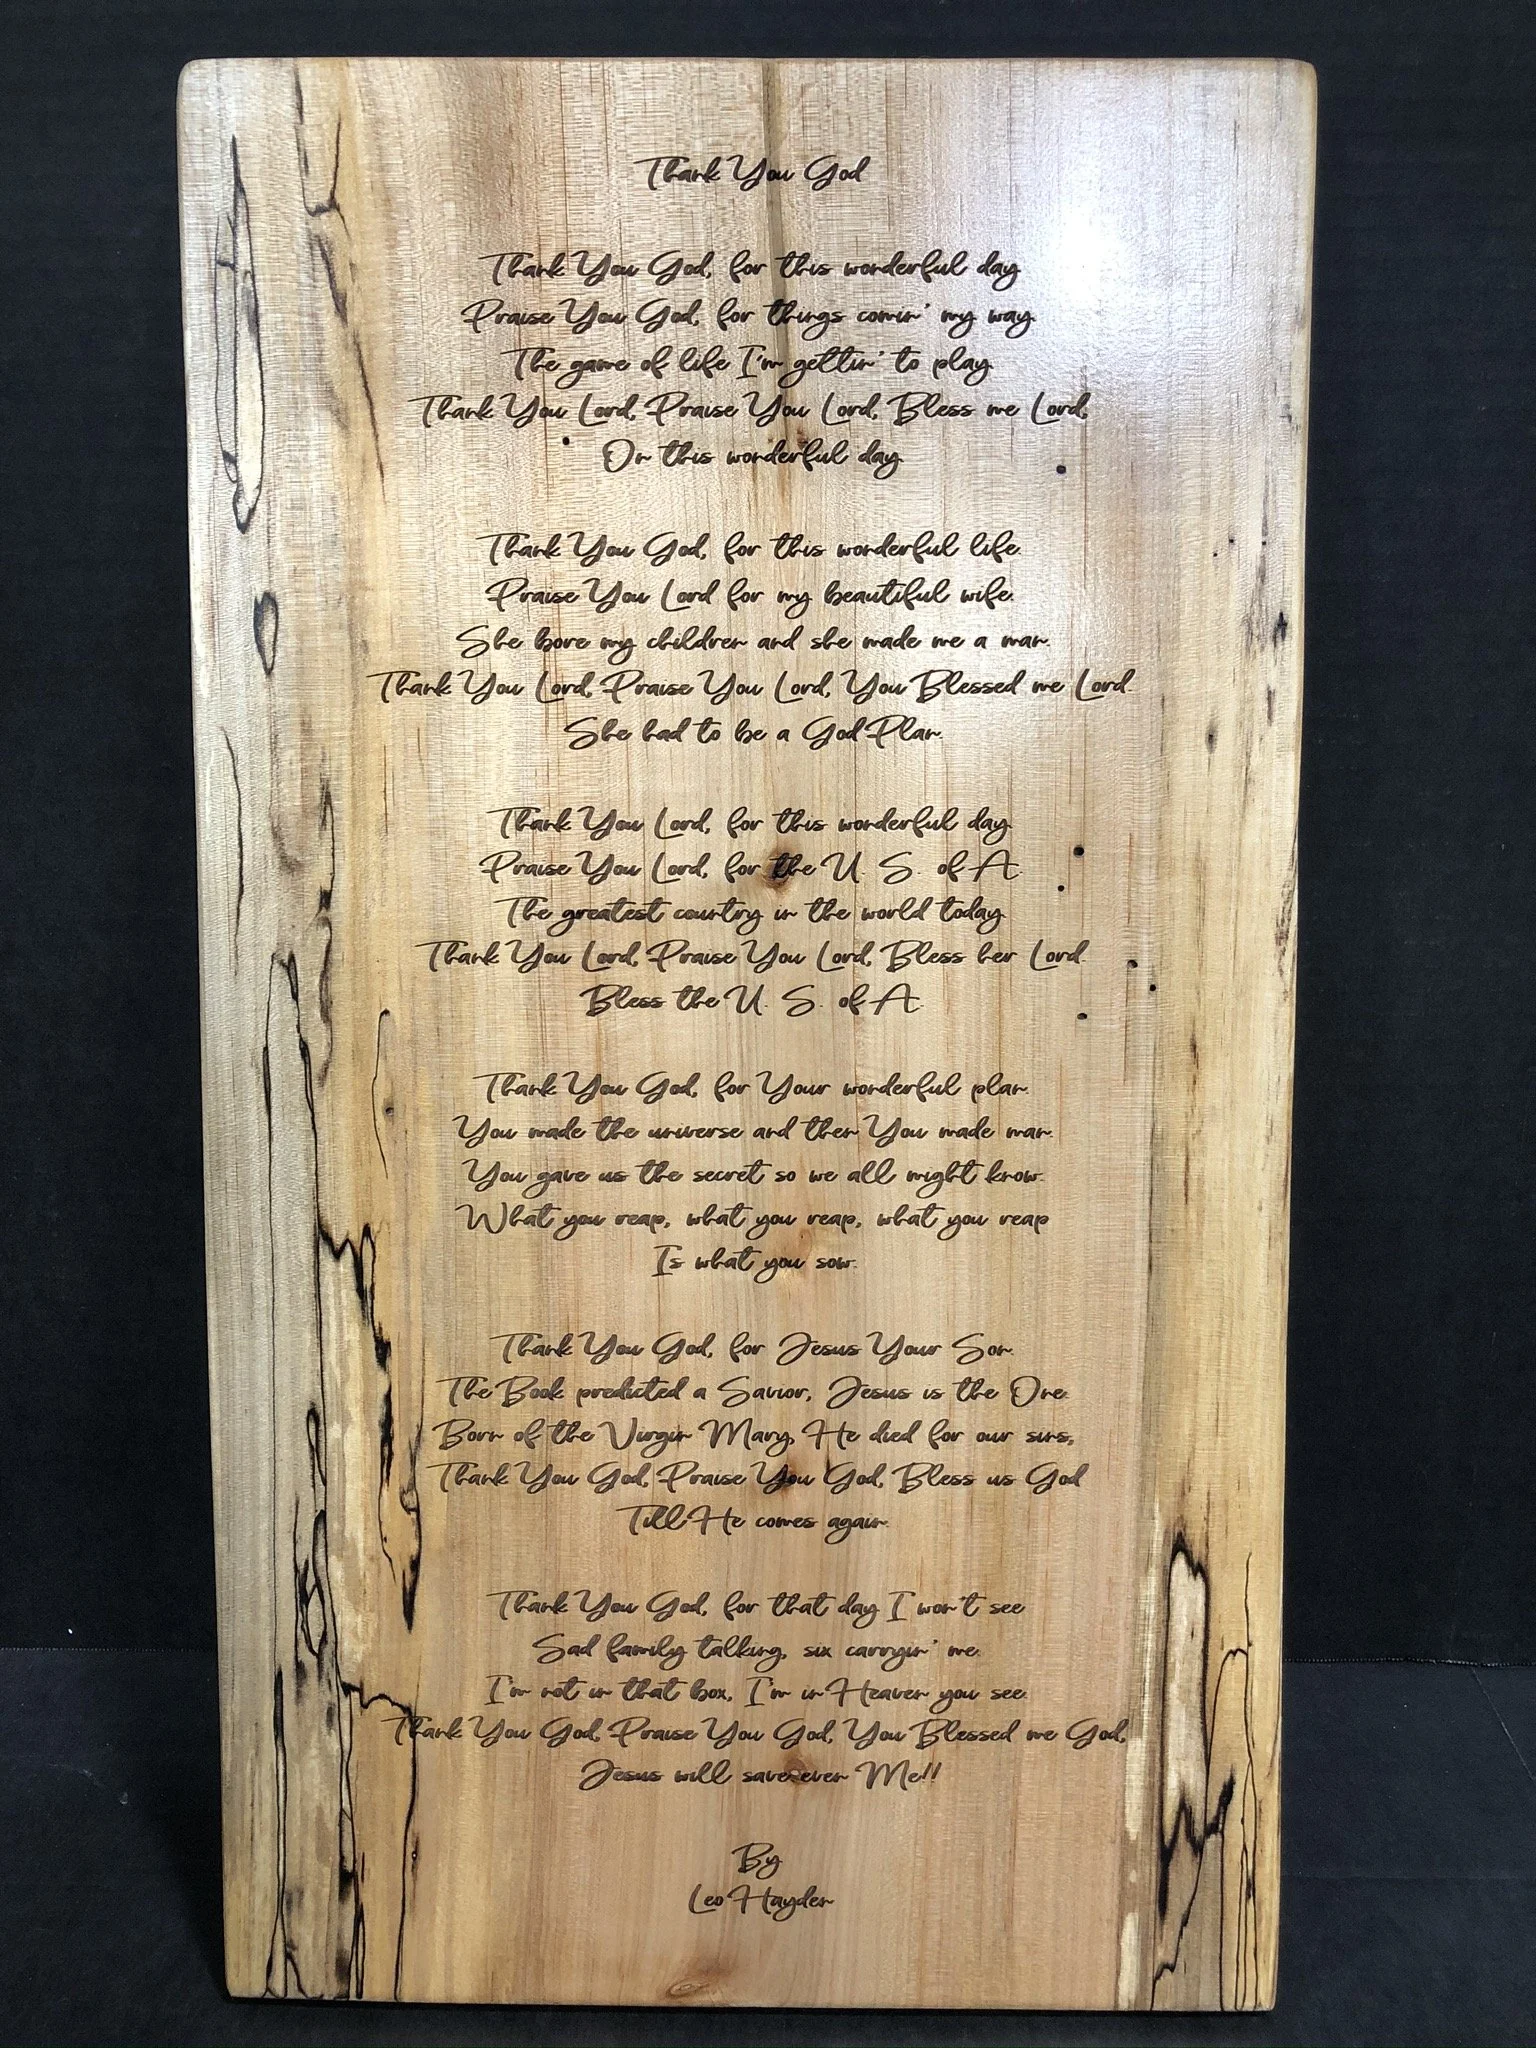 Thank You God
Thank You God, for this wonderful day.
Praise You God, for things comin' my way.
The game of life I'm gettin' to play.
Thank You Lord, Praise You Lord, Bless me Lord,
On this wonderful day.
Thank You God, for this wonderful life.
Praise You Lord for my beautiful wife.
She bore my children and she made me a man.
Thank You Lord, Praise You Lord, You Blessed me Lord.
She had to be a God Plan.
Thank You Lord, for this wonderful day.
Praise You Lord, for the U. S. of A.
The greatest country in the world today.
Thank You Lord, Praise You Lord, Bless her Lord.
Bless the U. S. of A.
Thank You God, for Your wonderful plan.
You made the universe and then You made man.
You gave us the secret so we all might know.
What you reap, what you reap, what you reap
Is what you sow.
Thank You God, for Jesus Your Son.
The Book predicted a Savior, Jesus is the One.
Born of the Virgin Mary, He died for our sins,
Thank You God, Praise You God, Bless us God
Till He comes again.
Thank You God, for that day I won't see
Sad family talking, six carryin' me.
I'm not in that box, I'm in Heaven you see.
Thank You God, Praise You God, You Blessed me God,
Jesus will save even Me!!
By
Leo Hayden